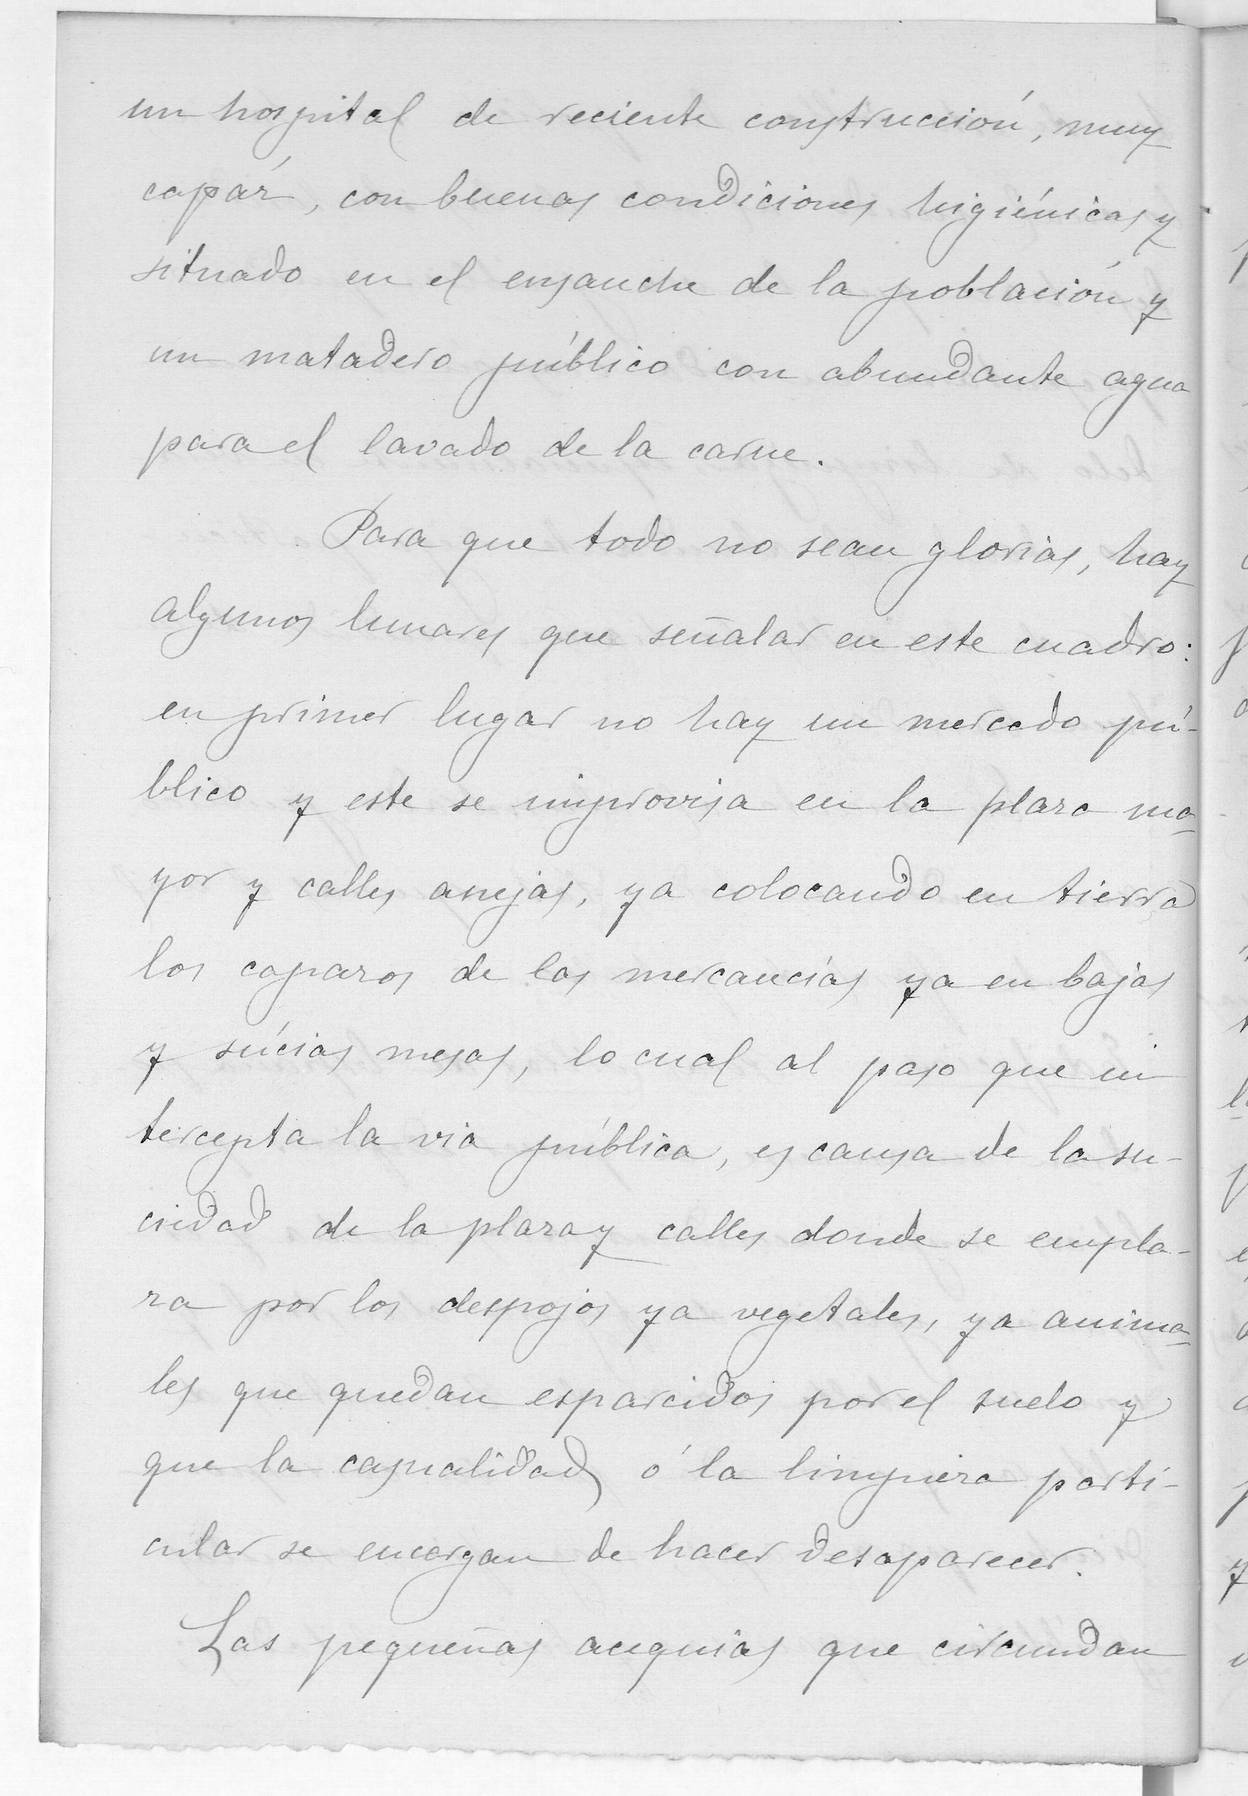 un hospital de reciente construcción, muy
capáz, con buenas condiciones higiénicas y
situado en el ensanche de la población y
un matadero público con abundante agua
para el lavado de la carne.
Para que todo no sean glorias, hay
algunos lunares que señalar en este cuadro:
en primer lugar no hay un mercado pú-
blico y este se improvisa en la plaza ma-
yor y calles anejas, ya colocando en tierra
los capazos de las mercancías ya en bajas
y súcias mesas, lo cual al paso que in
tercepta la via pública, es causa de la su-
ciedad de la plaza y calles donde se empla-
za por los despojos ya vegetales, ya anima-
les que quedan esparcidos por el suelo y
que la casualidad ó la limpieza parti-
cular se encargan de hacer desaparecer.
Las pequeñas acequias que circundan